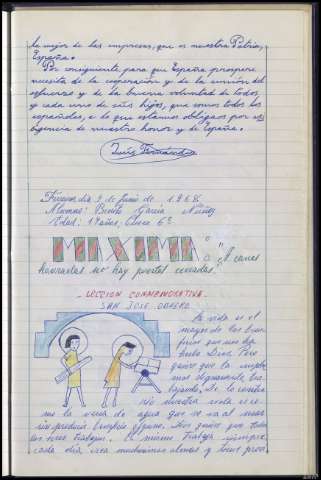 la mejor de las empresas, que es nuestra Patria,
España.
Por consiguiente, para que España prospere
necesita de la cooperación y de la unión del
esfuerzo y de la buena voluntad de todos
y cada uno de sus hijos, que somos todos los
españoles, a lo que estamos obligados por exi
gencia de nuestro honor y de España.
Luis Fernández
día 9 de Junio de 1968
Alumno: Benito García Núñez
Edad: 14 años, Clase 6ª
MAXIMA: "A canas
honradas no hay puertas cerradas."
LECCION CONMEMORATIVA
SAN JOSE OBRERO
La vida es el
mayor de los bene
ficios que nos ha
hecho Dios. Pero
quiere que la emplee
mos dignamente, tra
bajando. De lo contra
rio nuestra vida sería
como la de agua que se va al mar
sin producir beneficio alguno. Dios quiere que todos
los seres trabajen. El mismo trabaja siempre,
cada día crea muchísimas almas y tiene provi